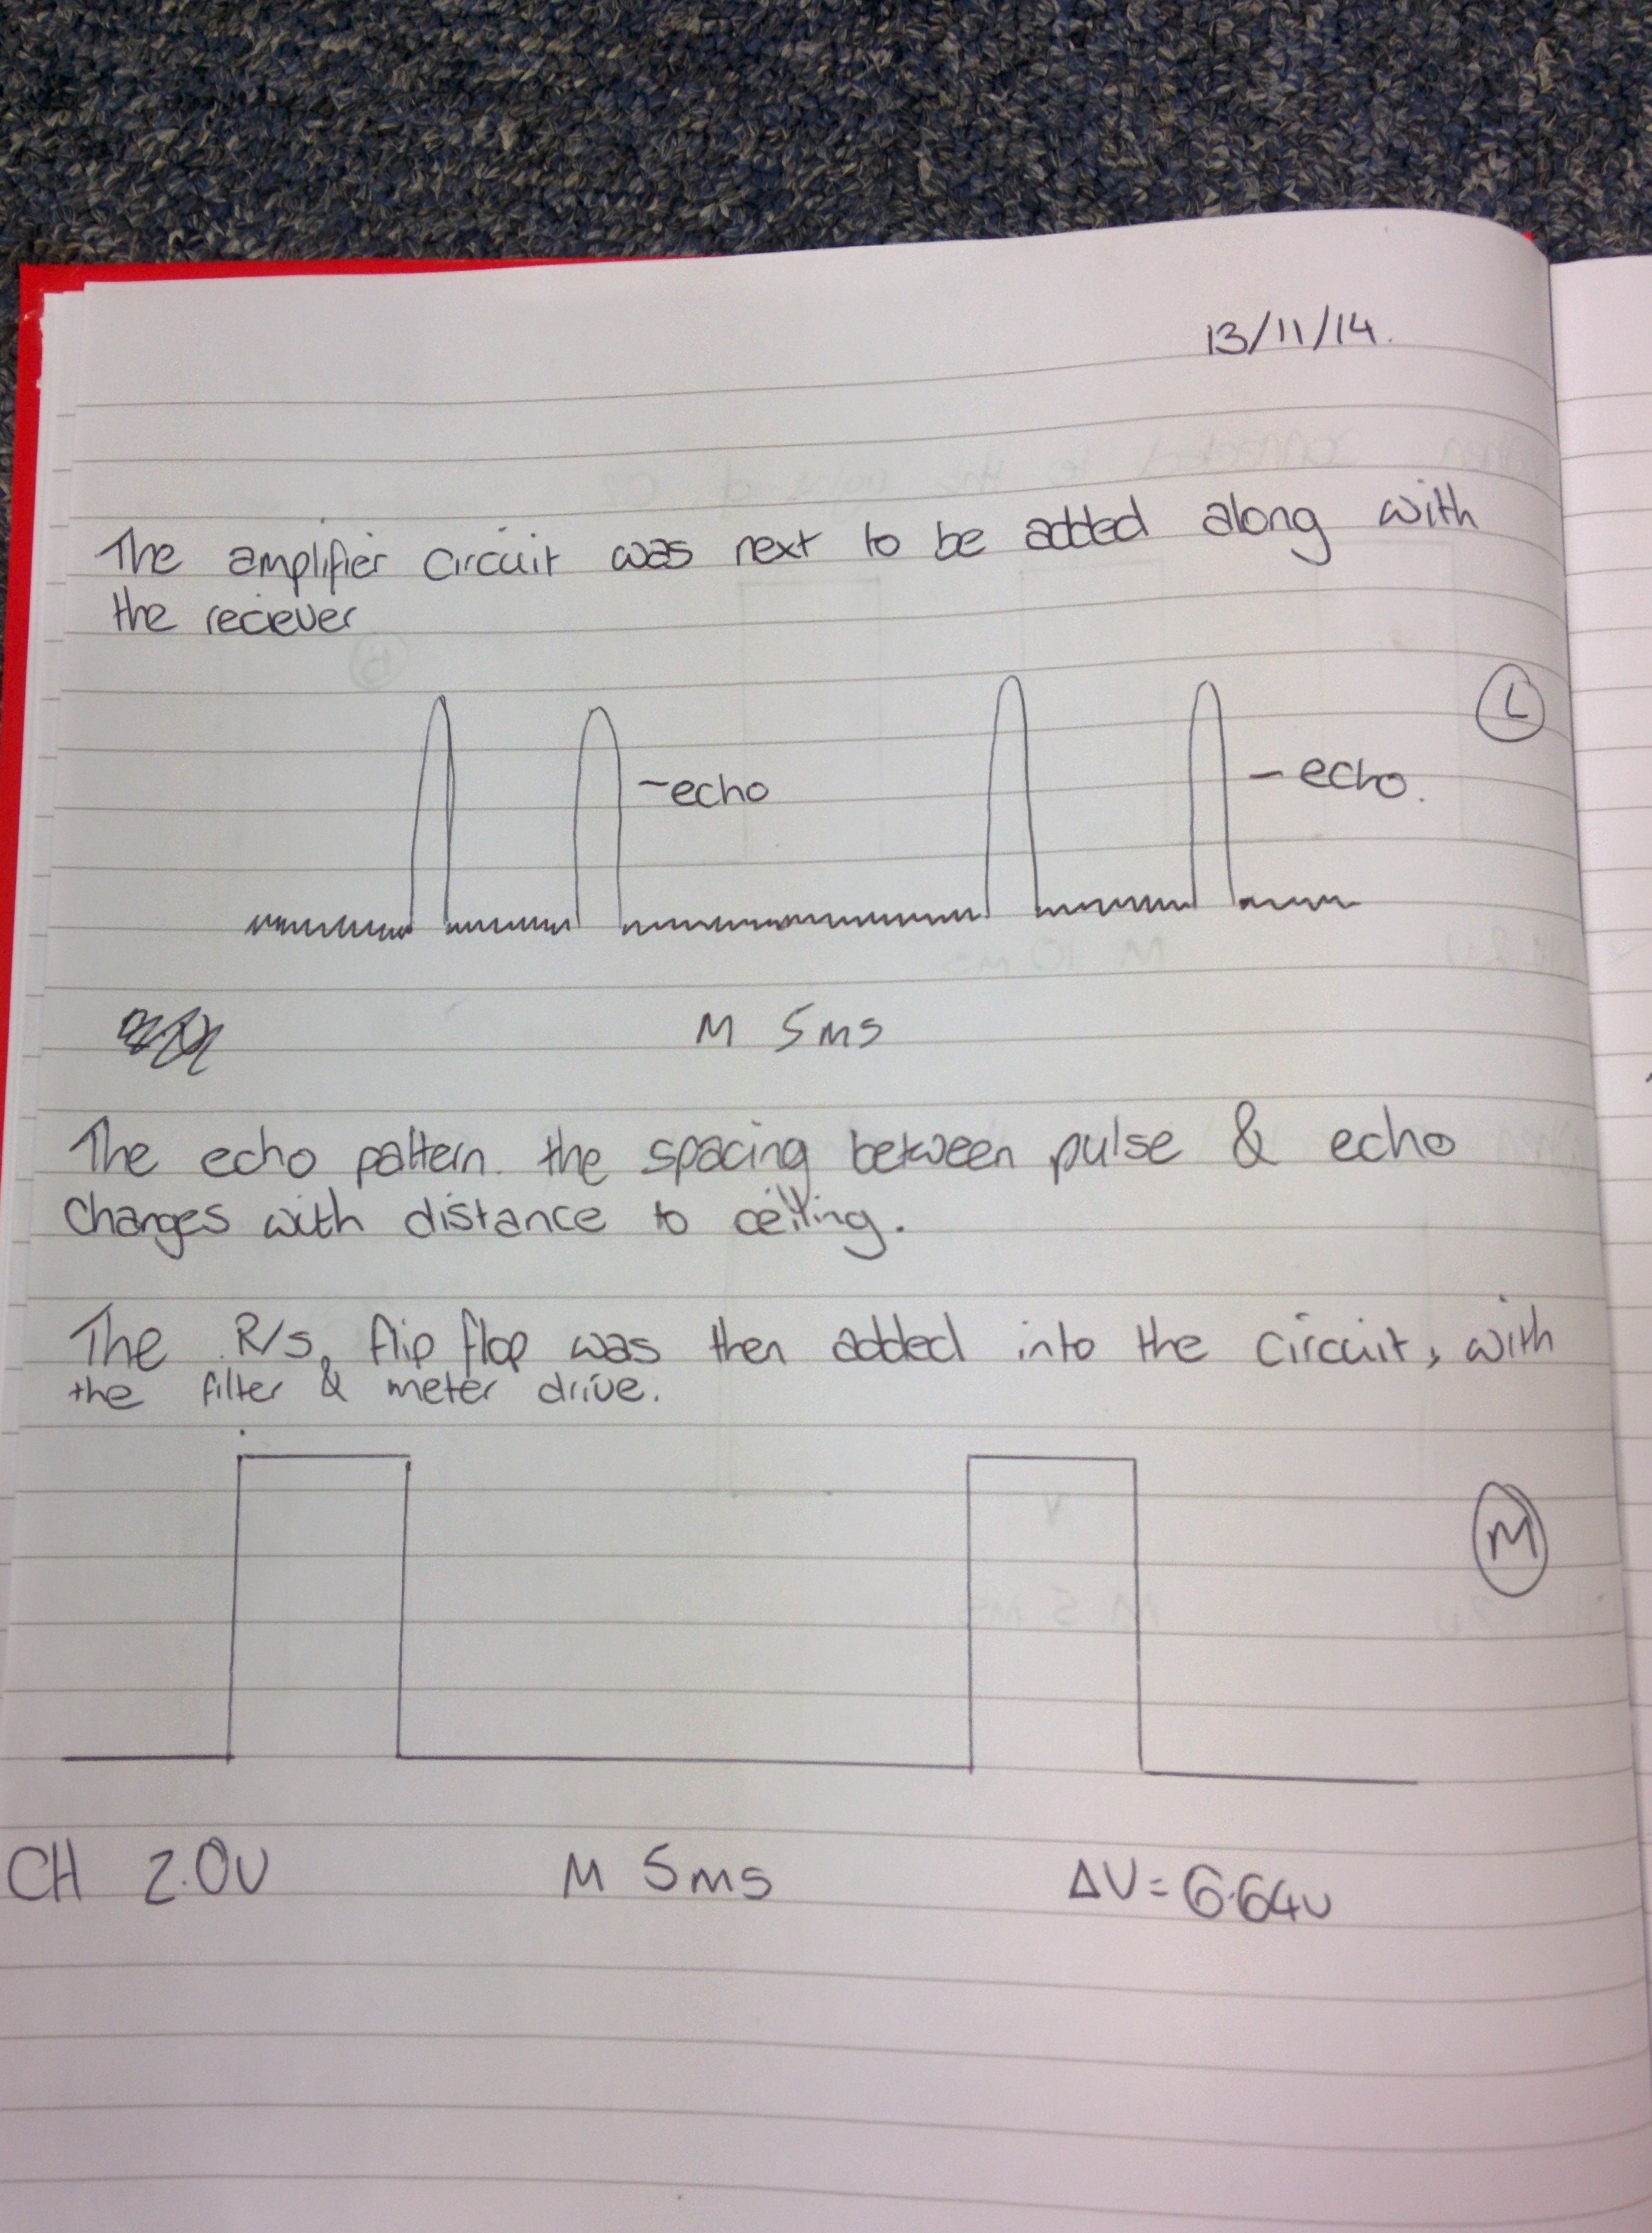 13/11/14.
The amplifier circuit was next to be added along with
the reciever
L
-echo
- echo.
M 5ms
The echo pattern. the spacing between pulse & echo
changes with distance to ceiling.
The R/S, flip flop was then added into the circuit, with
the filter & meter drive.
M
CH 2.0V M 5ms ΔV = 6.64v